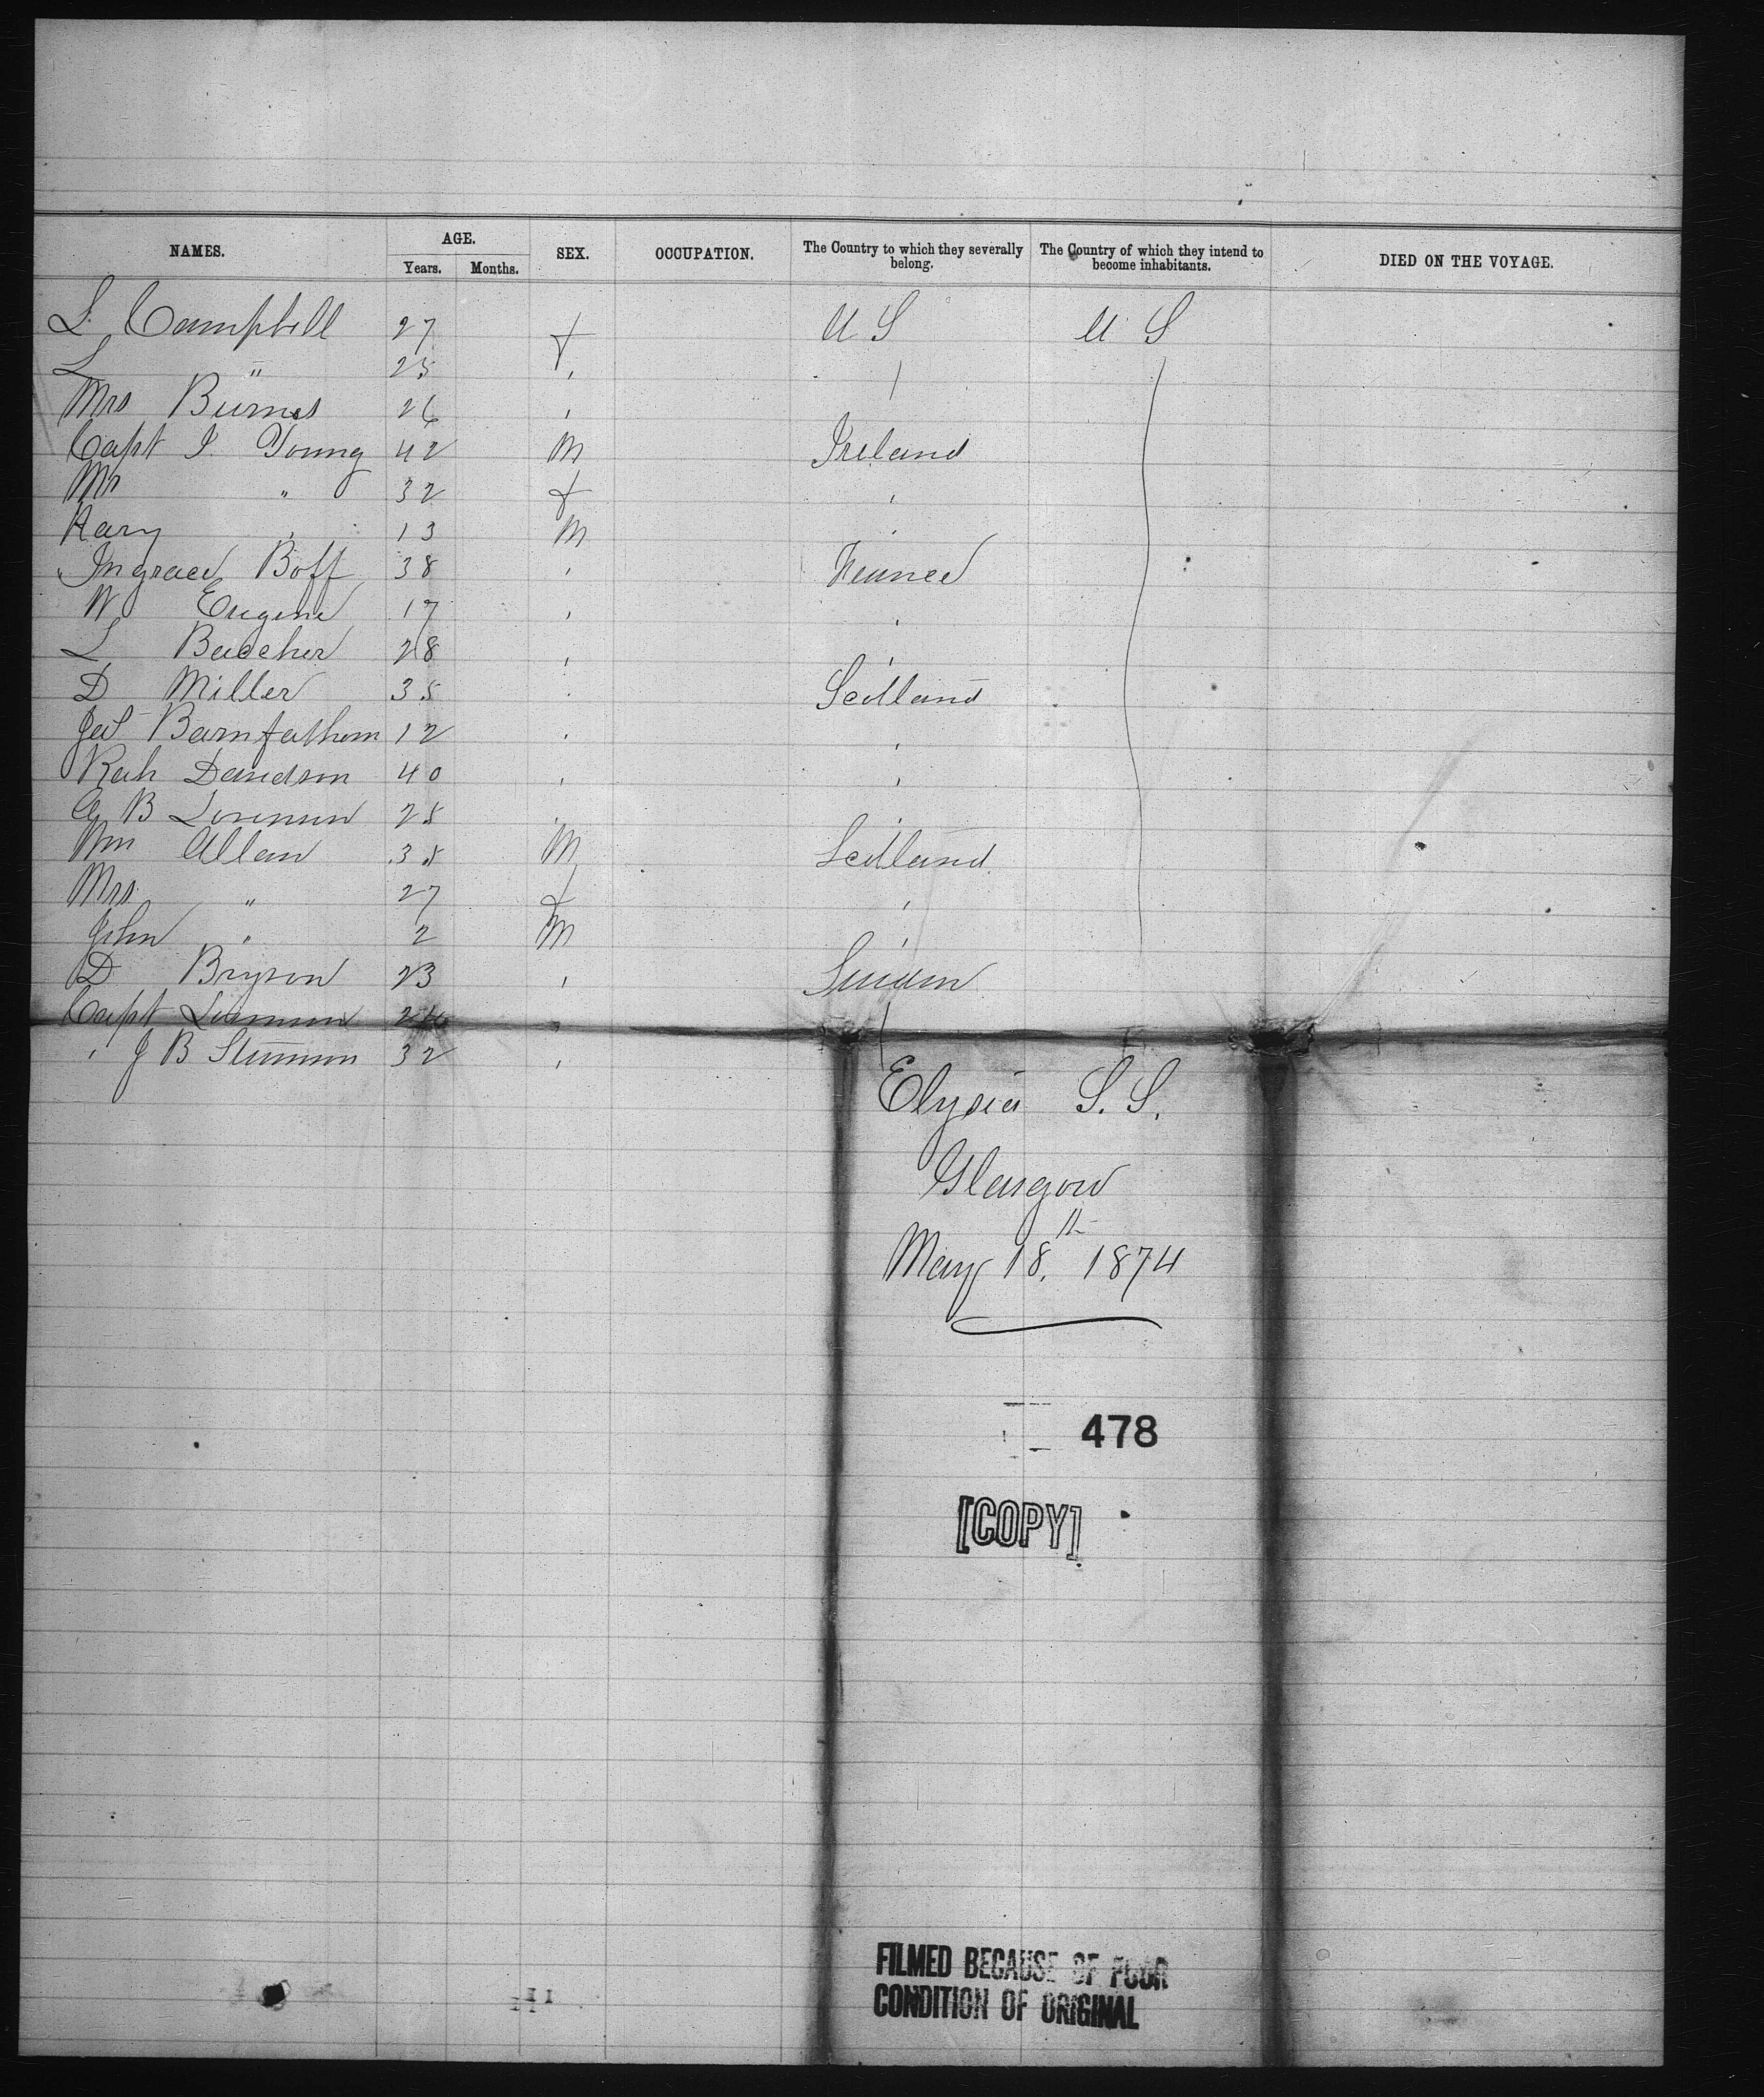 NAMES. AGE. SEX. OCCUPATION. The Country to which they severally belong. The Country of which they intend to become inhabitants. DIED ON THE VOYAGE.
Years. Months.
L. Campbell 27 f U S U S
L " 25 ,
Mrs Burnes 26 ,
Capt J. Young 42 M Ireland
Mr " 32 f ,
Hary , 13 M ,
Boff 38 ,
W Eugene 17 , ,
L Beecher 28 , ,
D Miller 35 , Scotland
Jas 12 , ,
Davidson 40 , ,
G B 25 , ,
Wm Allan 35 M Scotland
Mrs " 27 f ,
John " 2 M ,
D Bryson 23 ,
Capt
, J B 32 ,
Elysia S. S.
Glasgow
May 18th 1874
478
[COPY]
FILMED BECAUSE OF POOR
CONDITION OF ORIGINAL